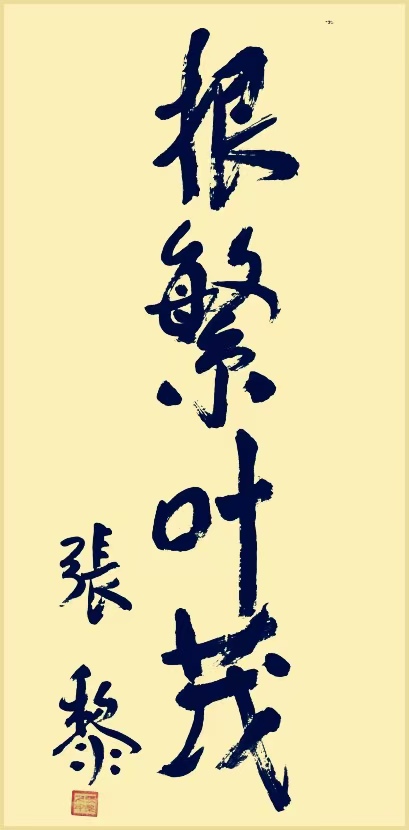 根繁叶茂
張黎